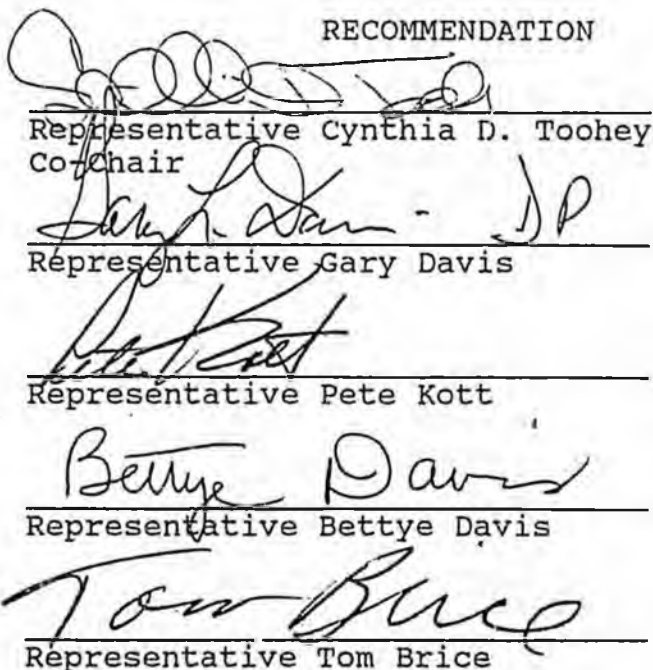 RECOMMENDATION
Representative Cynthia D. Toohey
Co-Chair
Gary L. Davis - DP
Representative Gary Davis
Pete Kott
Representative Pete Kott
Bettye Davis
Representative Bettye Davis
Tom Brice
Representative Tom Brice